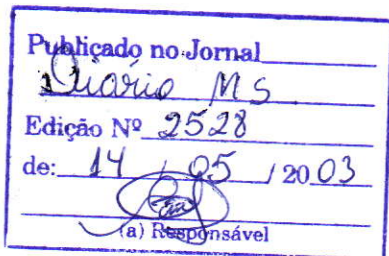 Publicado no Jornal
Diário MS
Edição Nº 2528
de: 14 / 05 / 2003
(a) Responsável